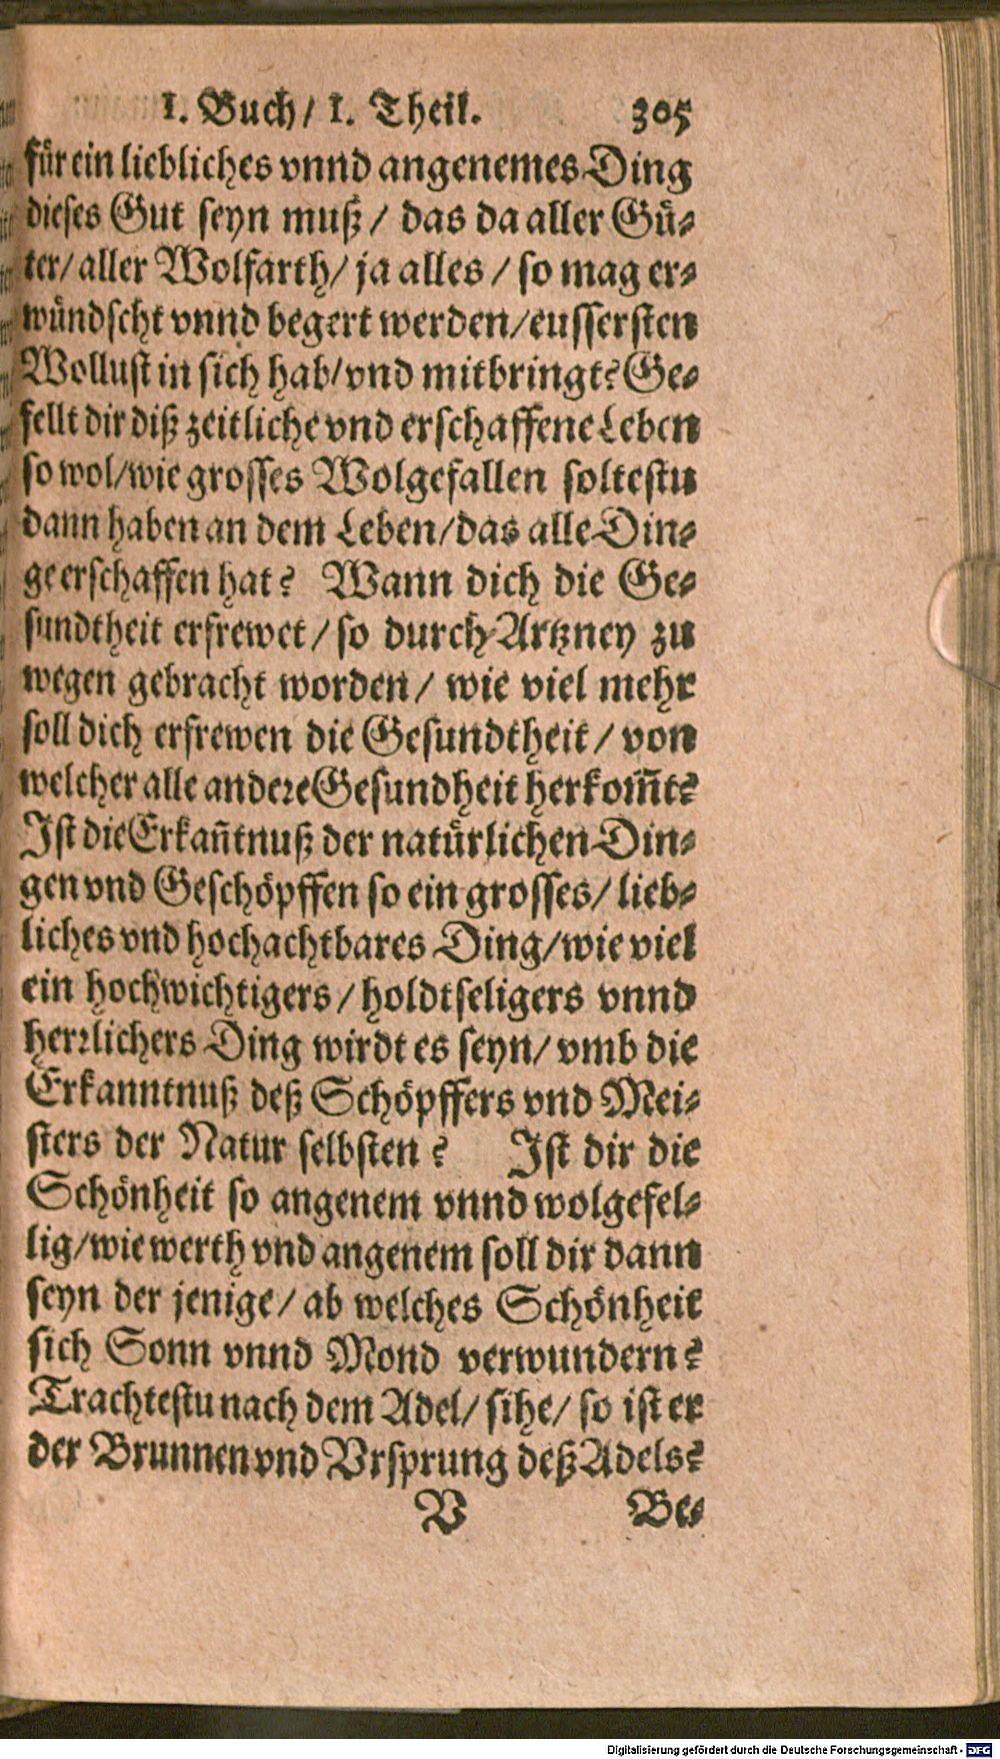 1. Buch/ 1. Theil. 305
für ein liebliches vnnd angenemes Ding
dieses Gut seyn muß/ das da aller Gü-
ter/ aller Wolfarth/ ja alles/ so mag er-
wündscht vnnd begert werden/ eussersten
Wollust in sich hab/ vnd mitbringt? Ge-
fellt dir diß zeitliche vnd erschaffene Leben
so wol/ wie grosses Wolgefallen soltestu
dann haben an dem Leben/ das alle Din-
ge erschaffen hat? Wann dich die Ge-
sundtheit erfrewet/ so durch Artzney zu
wegen gebracht worden/ wie viel mehr
soll dich erfrewen die Gesundtheit/ von
welcher alle andere Gesundheit herkom̃t?
Ist die Erkañtnuß der natürlichen Din-
gen vnd Geschöpffen so ein grosses/ lieb-
liches vnd hochachtbares Ding/ wie viel
ein hochwichtigers/ holdtseligers vnnd
herrlichers Ding wirdt es seyn/ vmb die
Erkanntnuß deß Schöpffers vnd Mei-
sters der Natur selbsten? Ist dir die
Schönheit so angenem vnnd wolgefel-
lig/ wie werth vnd angenem soll dir dann
seyn der jenige/ ab welches Schönheit
sich Sonn vnnd Mond verwundern?
Trachtestu nach dem Adel/ sihe/ so ist er
der Brunnen vnd Vrsprung deß Adels?
V Be-
Digitalisierung gefördert durch die Deutsche Forschungsgemeinschaft - DFG